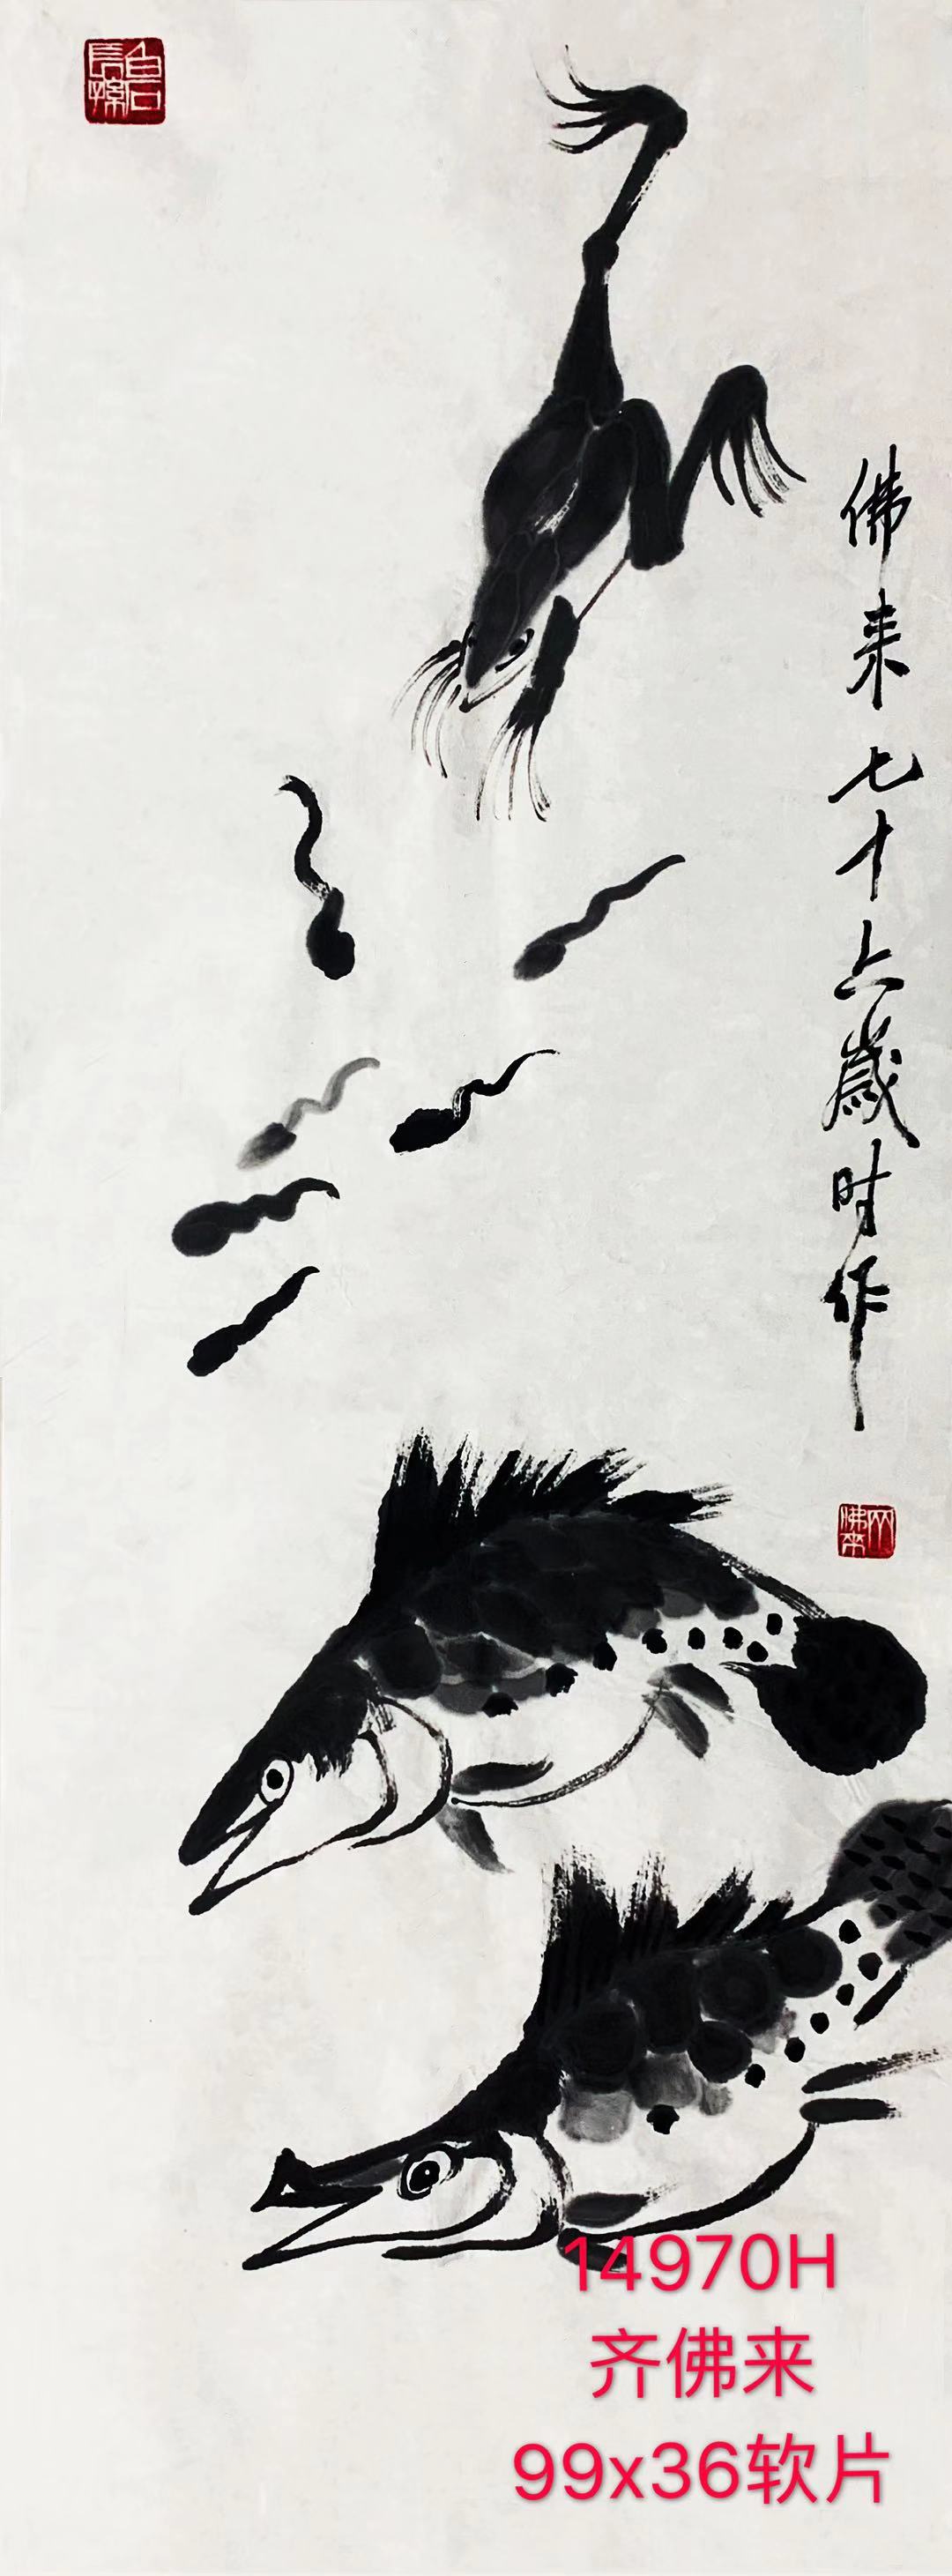 白石長孫
佛来七十上歲时作
14970H
齐佛来
99x36软片